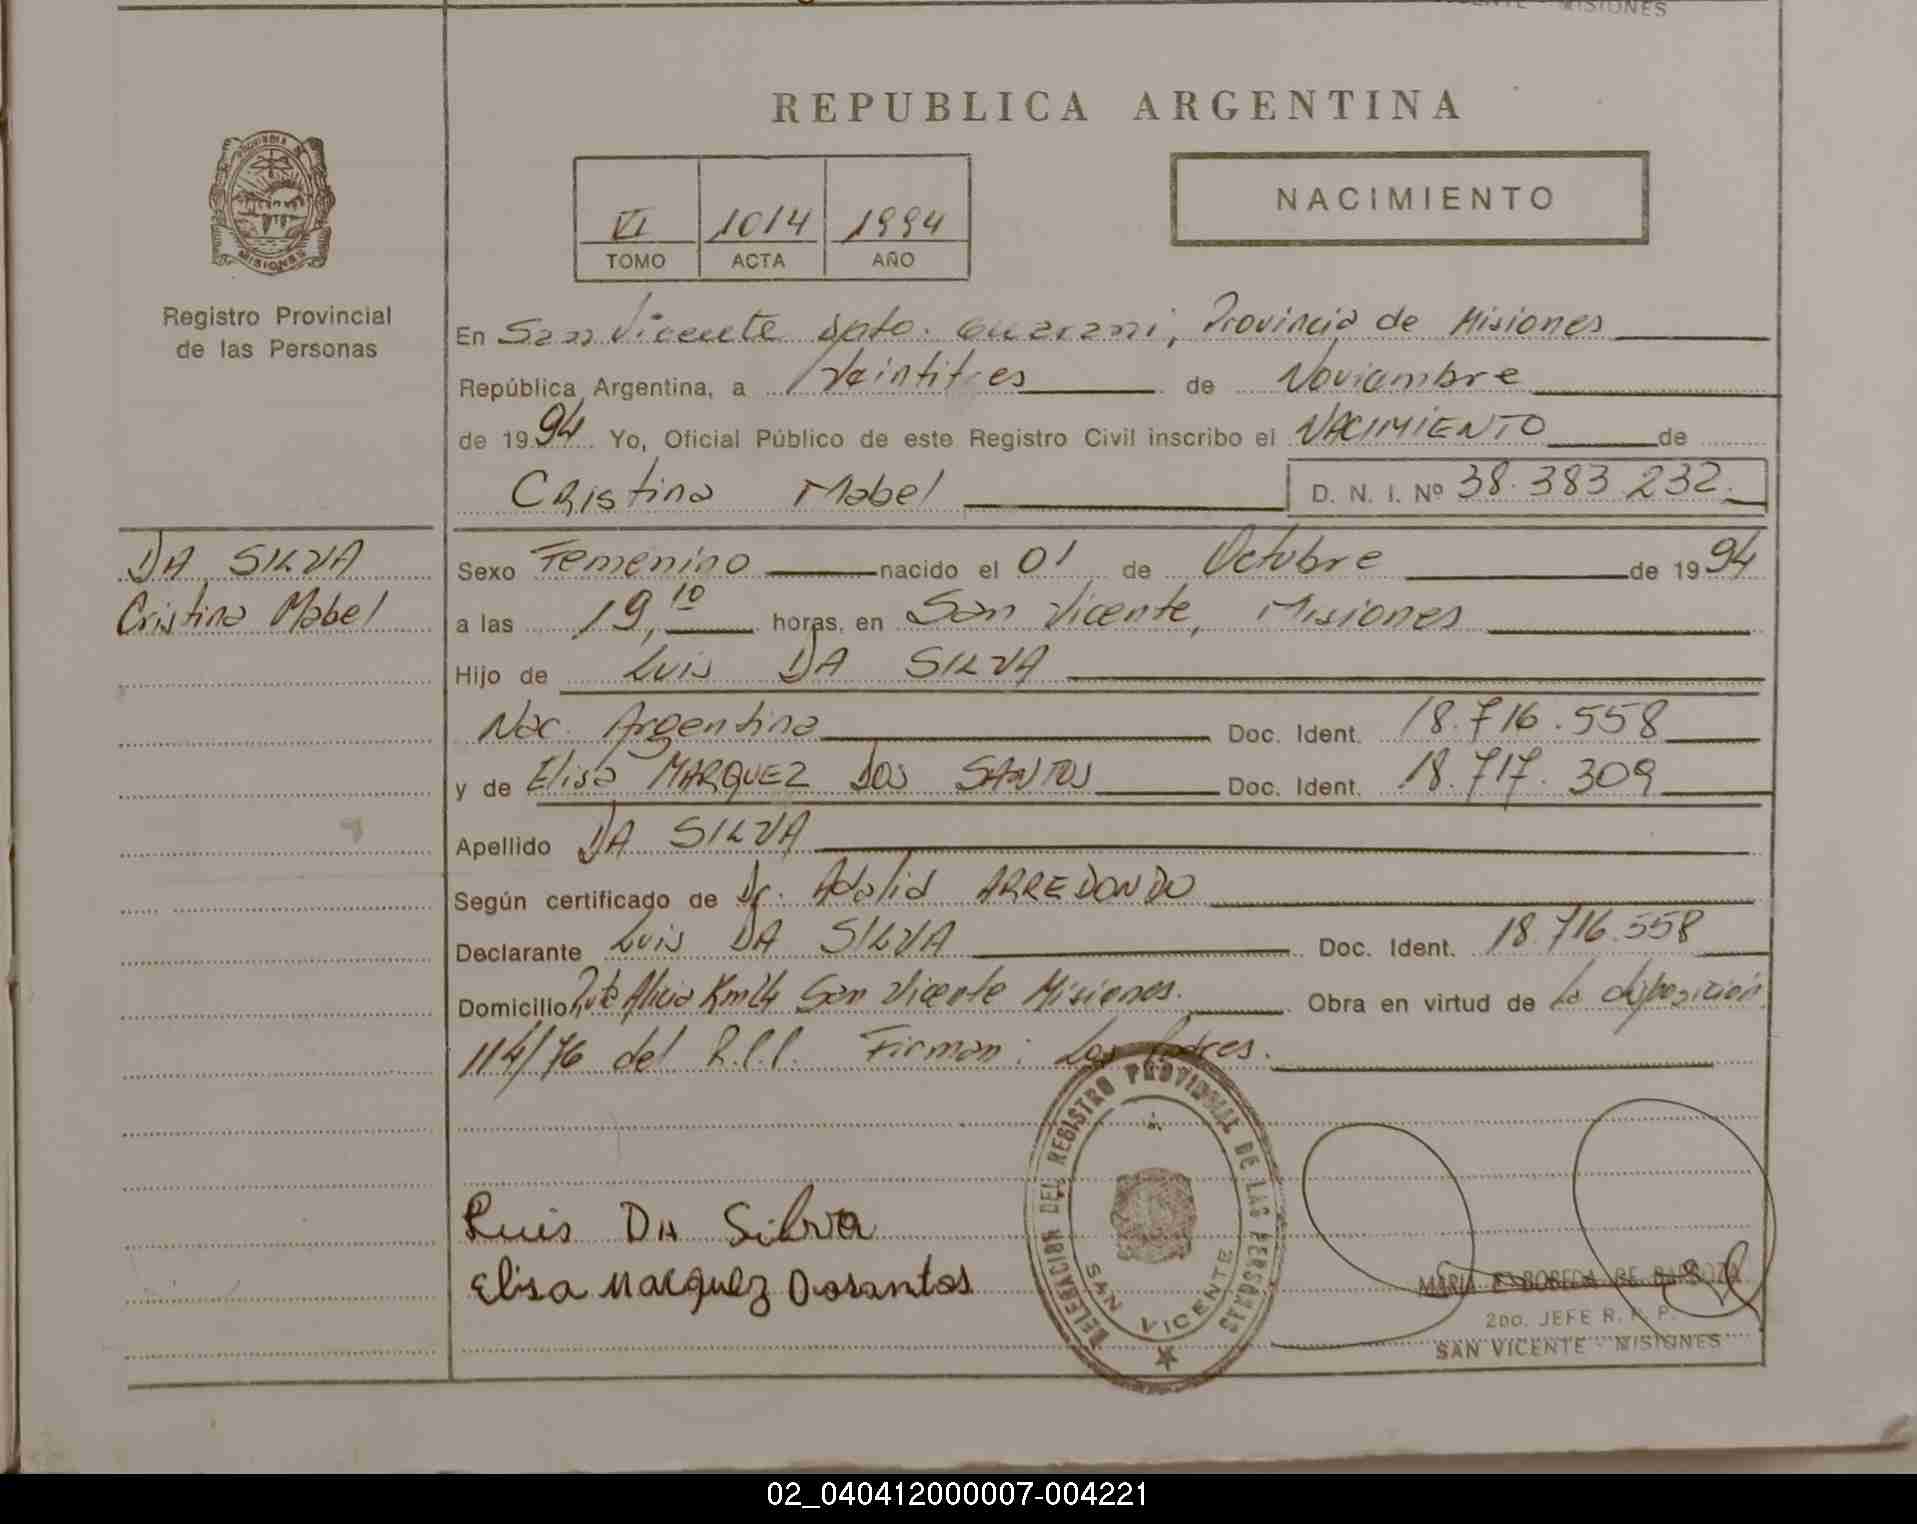 REPUBLICA ARGENTINA
PROVINCIA DE MISIONES
Registro Provincial
de las Personas
VI 1014 1994
TOMO ACTA AÑO
NACIMIENTO
En San Vicente Dpto. Guarani, Provincia de Misiones
República Argentina, a Veintitres de Noviembre
de 1994 Yo, Oficial Público de este Registro Civil inscribo el NACIMIENTO de
Cristina Mabel D. N. I. Nº 38.383.232.
DA SILVA
Cristina Mabel
Sexo Femenino nacido el 01 de Octubre de 1994
a las 19,10 horas, en San Vicente, Misiones
Hijo de Luis DA SILVA
Nac. Argentina Doc. Ident. 18.716.558
y de Elisa MARQUEZ DOS SANTOS Doc. Ident. 18.717.309
Apellido DA SILVA
Según certificado de Dr. Adalid ARREDONDO
Declarante Luis DA SILVA Doc. Ident. 18.716.558
Domicilio Ruta Alicia Km 24 San Vicente Misiones. Obra en virtud de La disposición
114/76 del R.C.C. Firman: Los Padres.
Luis DA Silva
Elisa Marquez Dosantos
DELEGACION DEL REGISTRO PROVINCIAL DE LAS PERSONAS
SAN VICENTE
MARIA E. BOBEDA DE BARBOZA
2DO. JEFE R. P. P.
SAN VICENTE - MISIONES
02_040412000007-004221